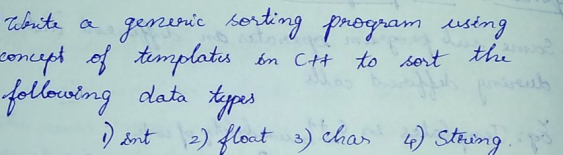 Write a generic sorting program using
concept of templates in C++ to sort the
following data types
1) int 2) float 3) char 4) String.